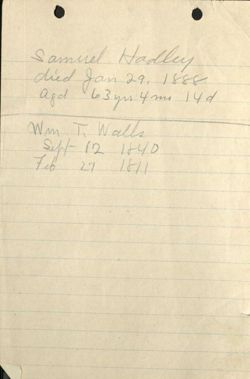 Samuel Hadley
died Jan 29, 1888
agd 63 yrs 4 ms 14 d
Wm. T. Walls
Sept 12 1840
Feb 27 1811